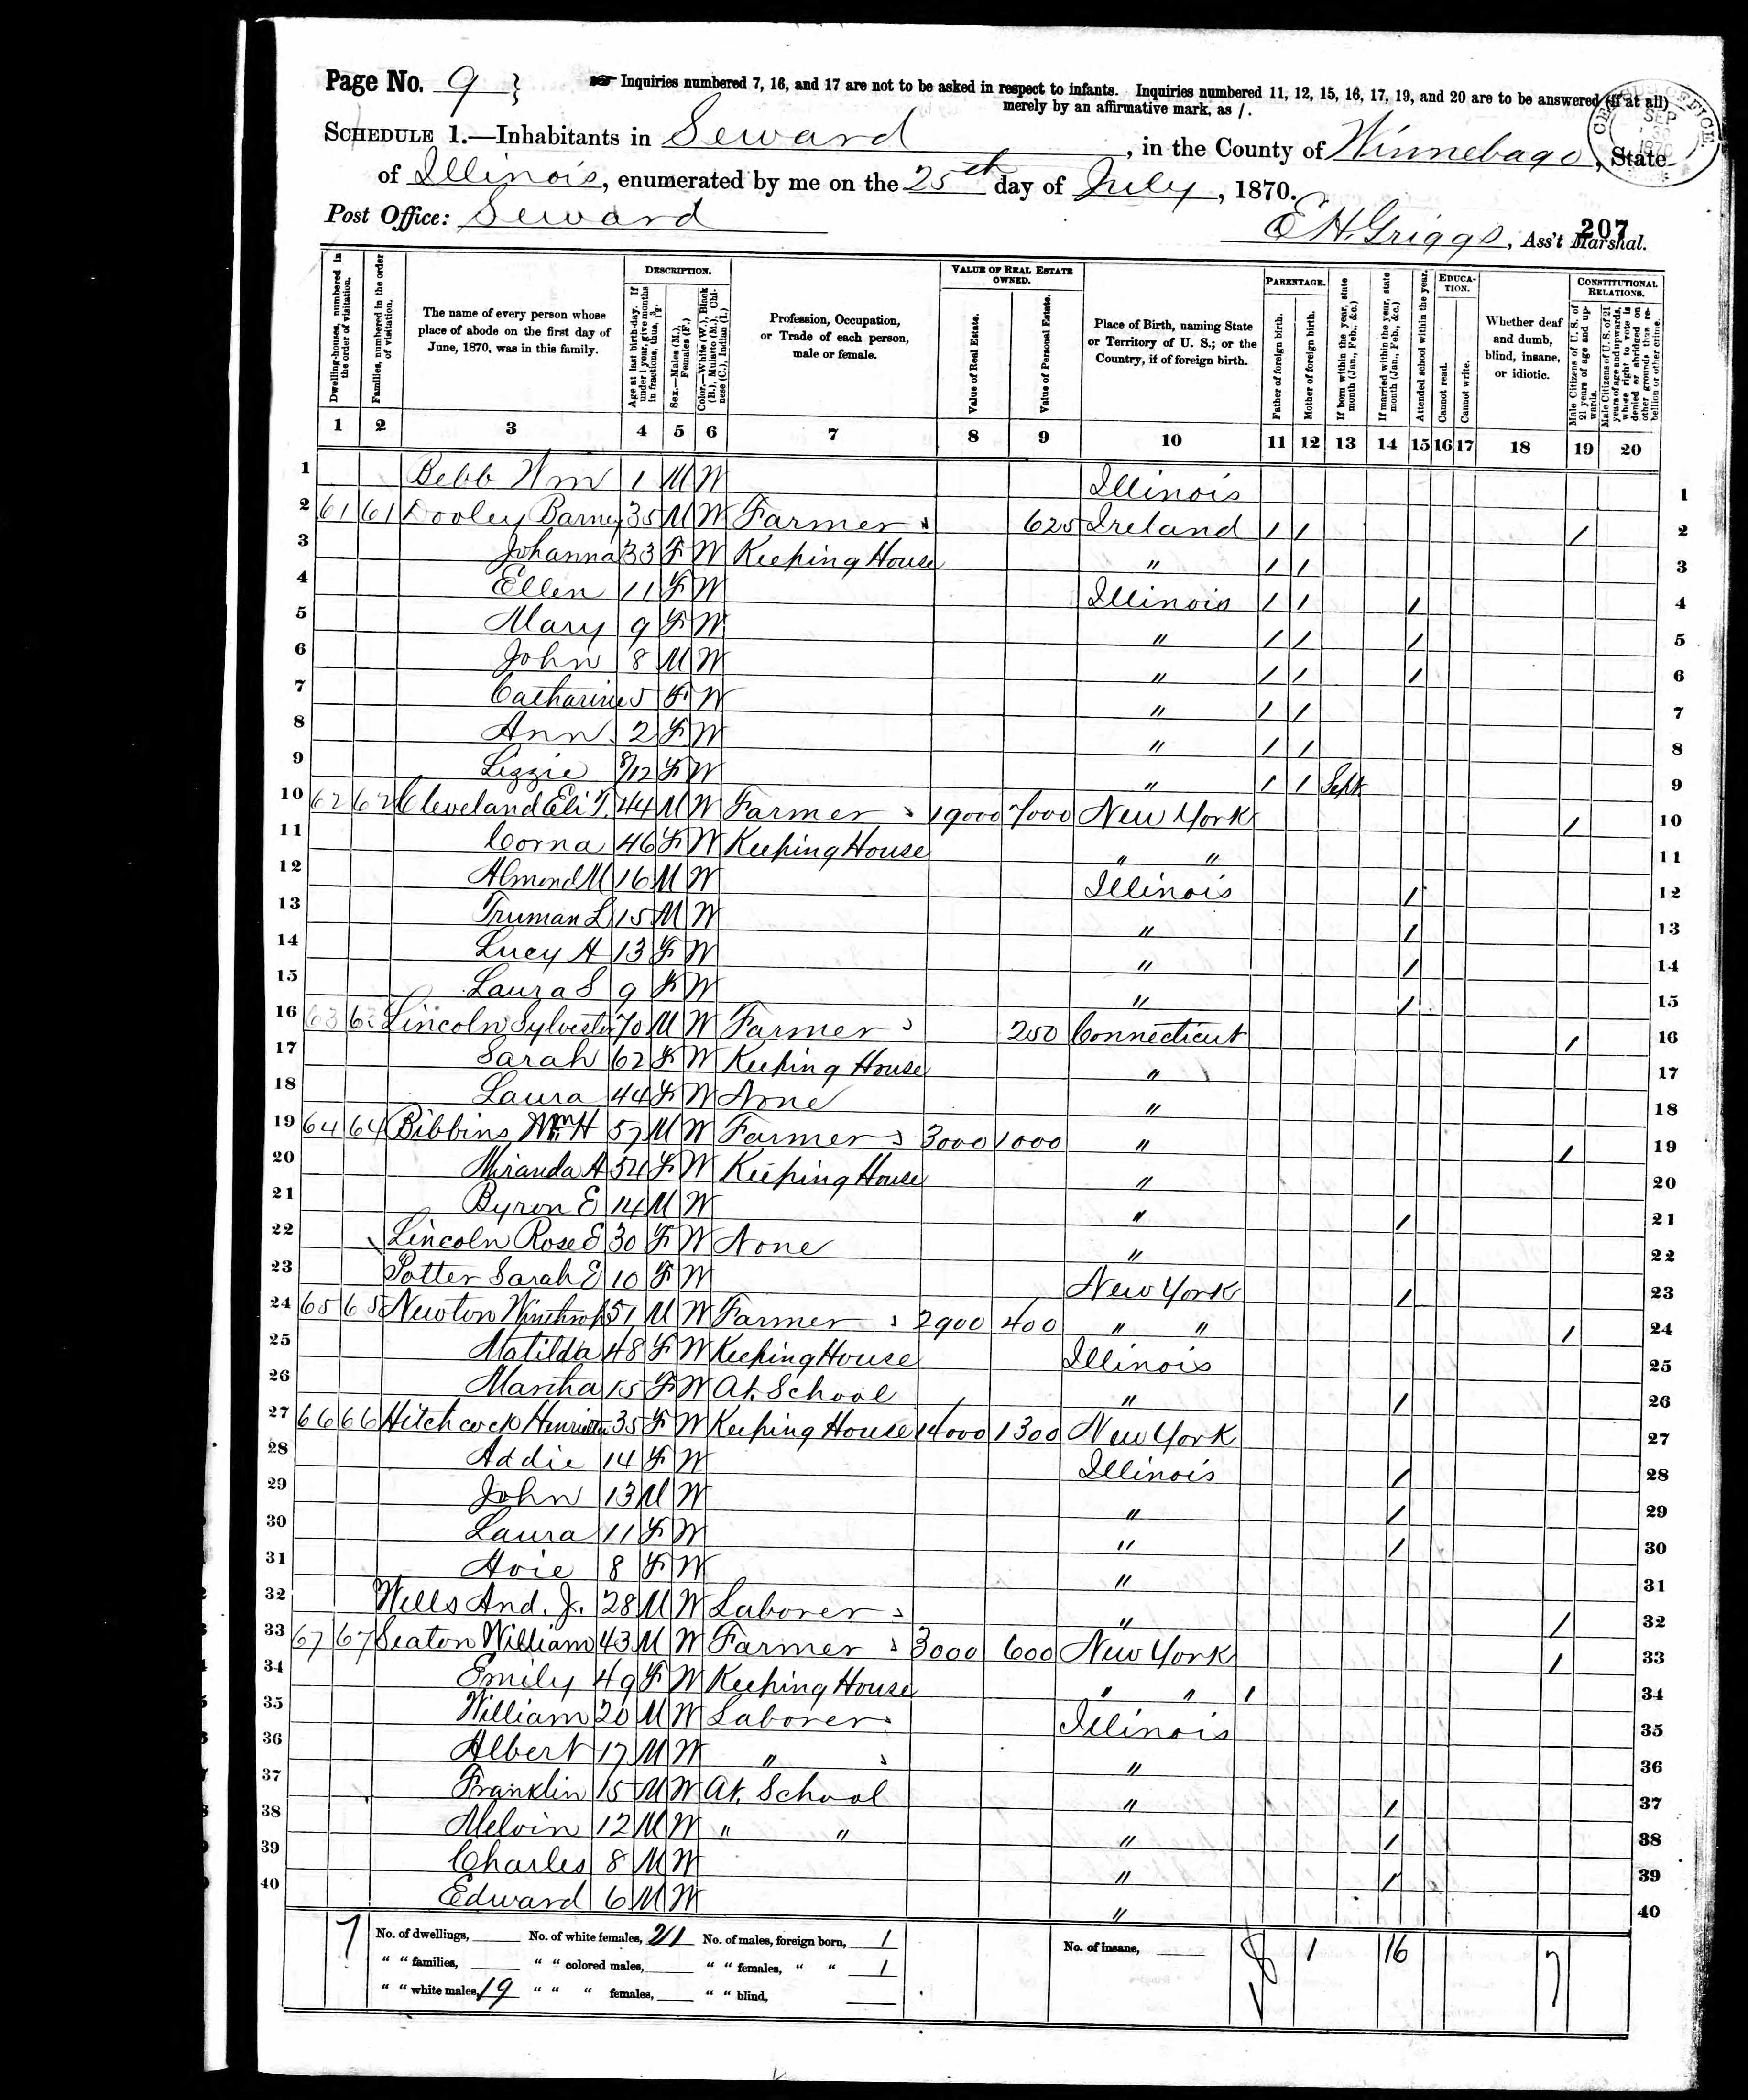 Page No. 9 } Inquiries numbered 7, 16, and 17 are not to be asked in respect to infants. Inquiries numbered 11, 12, 15, 16, 17, 19, and 20 are to be answered (if at all)
merely by an affirmative mark, as /.
SCHEDULE 1.—Inhabitants in Seward, in the County of Winnebago, State
of Illinois, enumerated by me on the 25th day of July, 1870.
CENSUS OFFICE SEP 1870
Post Office: Seward
207
E H. Griggs, Ass't Marshal.
Dwelling-houses, numbered in the order of visitation.
Families, numbered in the order of visitation.
The name of every person whose place of abode on the first day of June, 1870, was in this family.
DESCRIPTION.
Age at last birth-day. If under 1 year, give months in fractions, thus, 3/12.
Sex.—Males (M.), Females (F.)
Color.—White (W.), Black (B.), Mulatto (M.), Chinese (C.), Indian (I.)
Profession, Occupation, or Trade of each person, male or female.
VALUE OF REAL ESTATE OWNED.
Value of Real Estate.
Value of Personal Estate.
Place of Birth, naming State or Territory of U. S.; or the Country, if of foreign birth.
PARENTAGE.
Father of foreign birth.
Mother of foreign birth.
If born within the year, state month (Jan., Feb., &c.)
If married within the year, state month (Jan., Feb., &c.)
Attended school within the year.
EDUCATION.
Cannot read.
Cannot write.
Whether deaf and dumb, blind, insane, or idiotic.
CONSTITUTIONAL RELATIONS.
Male Citizens of U. S. of 21 years of age and upwards.
Male Citizens of U. S. of 21 years of age and upwards, whose right to vote is denied or abridged on other grounds than rebellion or other crime.
1 2 3 4 5 6 7 8 9 10 11 12 13 14 15 16 17 18 19 20
1 Bebb Wm 1 M W Illinois 1
2 61 61 Dooley Barney 35 M W Farmer 625 Ireland / / / 2
3 Johanna 33 F W Keeping House " / / 3
4 Ellen 11 F W Illinois / / / 4
5 Mary 9 F W " / / / 5
6 John 8 M W " / / / 6
7 Catharine 5 F W " / / 7
8 Ann 2 F W " / / 8
9 Lizzie 8/12 F W " / / Sept 9
10 62 62 Cleveland Eli T. 44 M W Farmer 19000 7000 New York / 10
11 Corna 46 F W Keeping House " " 11
12 Almond M 16 M W Illinois / 12
13 Truman L 15 M W " / 13
14 Lucy A 13 F W " / 14
15 Laura S 9 F W " / 15
16 63 63 Lincoln Sylvester 70 M W Farmer 250 Connecticut / 16
17 Sarah 62 F W Keeping House " 17
18 Laura 44 F W None " 18
19 64 64 Bibbins Wm H 57 M W Farmer 3000 1000 " / 19
20 Miranda A 54 F W Keeping House " 20
21 Byron E 14 M W " / 21
22 Lincoln Rose E 30 F W None " 22
23 Potter Sarah E 10 F W New York / 23
24 65 65 Newton Winthrop 51 M W Farmer 2900 400 " " / 24
25 Matilda 48 F W Keeping House Illinois 25
26 Martha 15 F W At School " / 26
27 66 66 Hitchcock Henrietta 35 F W Keeping House 14000 1300 New York 27
28 Addie 14 F W Illinois / 28
29 John 13 M W " / 29
30 Laura 11 F W " / 30
31 Avie 8 F W " 31
32 Wells And. J. 28 M W Laborer " / 32
33 67 67 Seaton William 43 M W Farmer 3000 600 New York / 33
34 Emily 49 F W Keeping House " " / 34
35 William 20 M W Laborer Illinois 35
36 Albert 17 M W " " 36
37 Franklin 15 M W At School " / 37
38 Melvin 12 M W " " " / 38
39 Charles 8 M W " / 39
40 Edward 6 M W " 40
7 No. of dwellings, No. of white females, 21 No. of males, foreign born, 1 No. of insane, 8 1 16 7
" " families, " " colored males, " " females, " " 1
" " white males, 19 " " " females, " " blind,